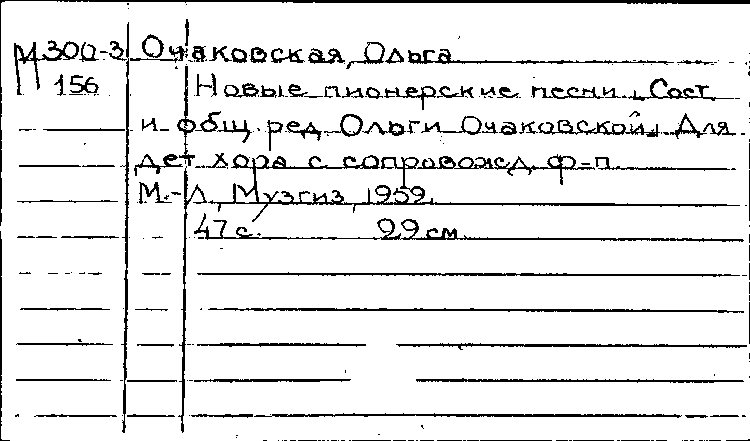 М 300-3 Очаковская, Ольга
156 Новые пионерские песни. Сост.
и общ. ред. Ольги Очаковской. Для
дет. хора с сопровожд. ф-п.
М.-Л., Музгиз, 1959.
47 с. 29 см.